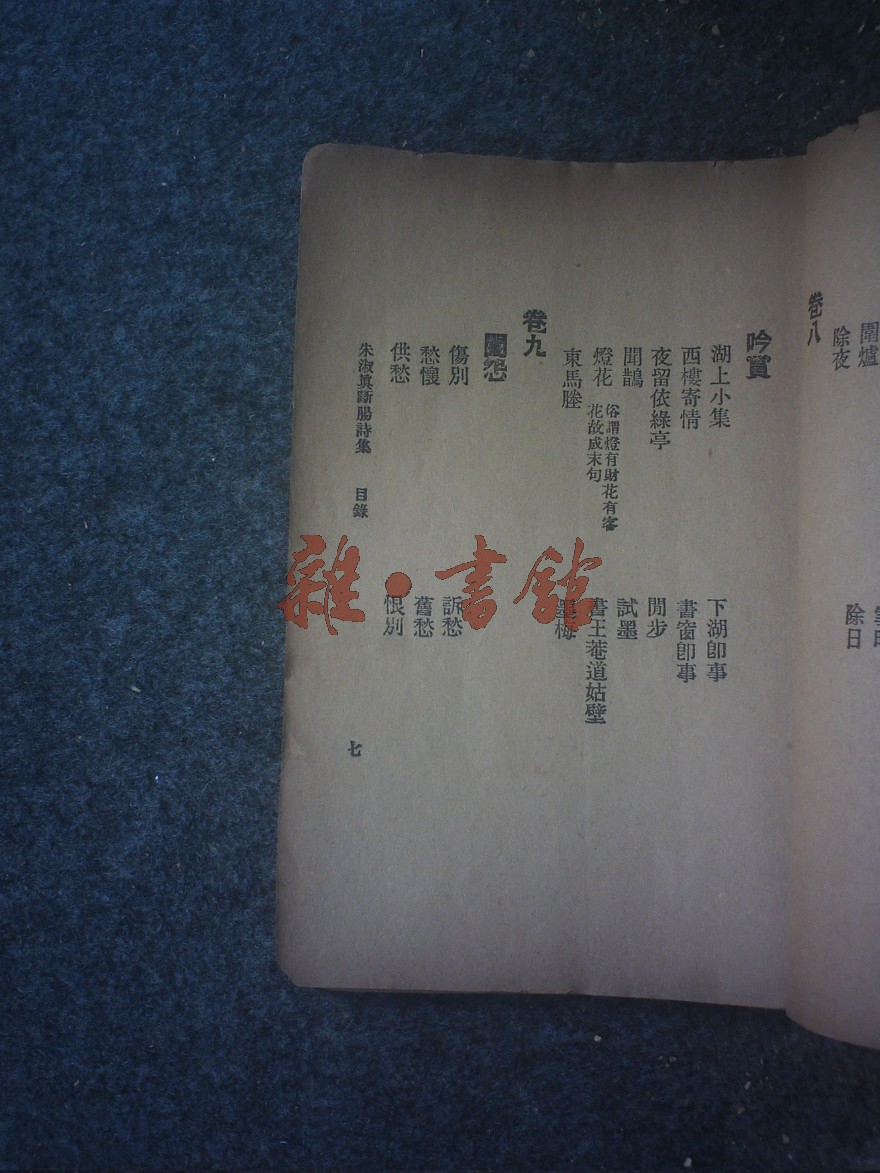 圍爐
除夜
除日
卷八
吟賞
湖上小集
下湖卽事
西樓寄情
書窗卽事
夜留依綠亭
閒步
聞鵲
試墨
燈花 俗謂燈有財花有客
花故成末句
書王菴道姑壁
東馬塍
墨梅
卷九
閨怨
傷別
訴愁
愁懷
舊愁
供愁
恨別
朱淑眞斷腸詩集 目錄
七
雜·書館